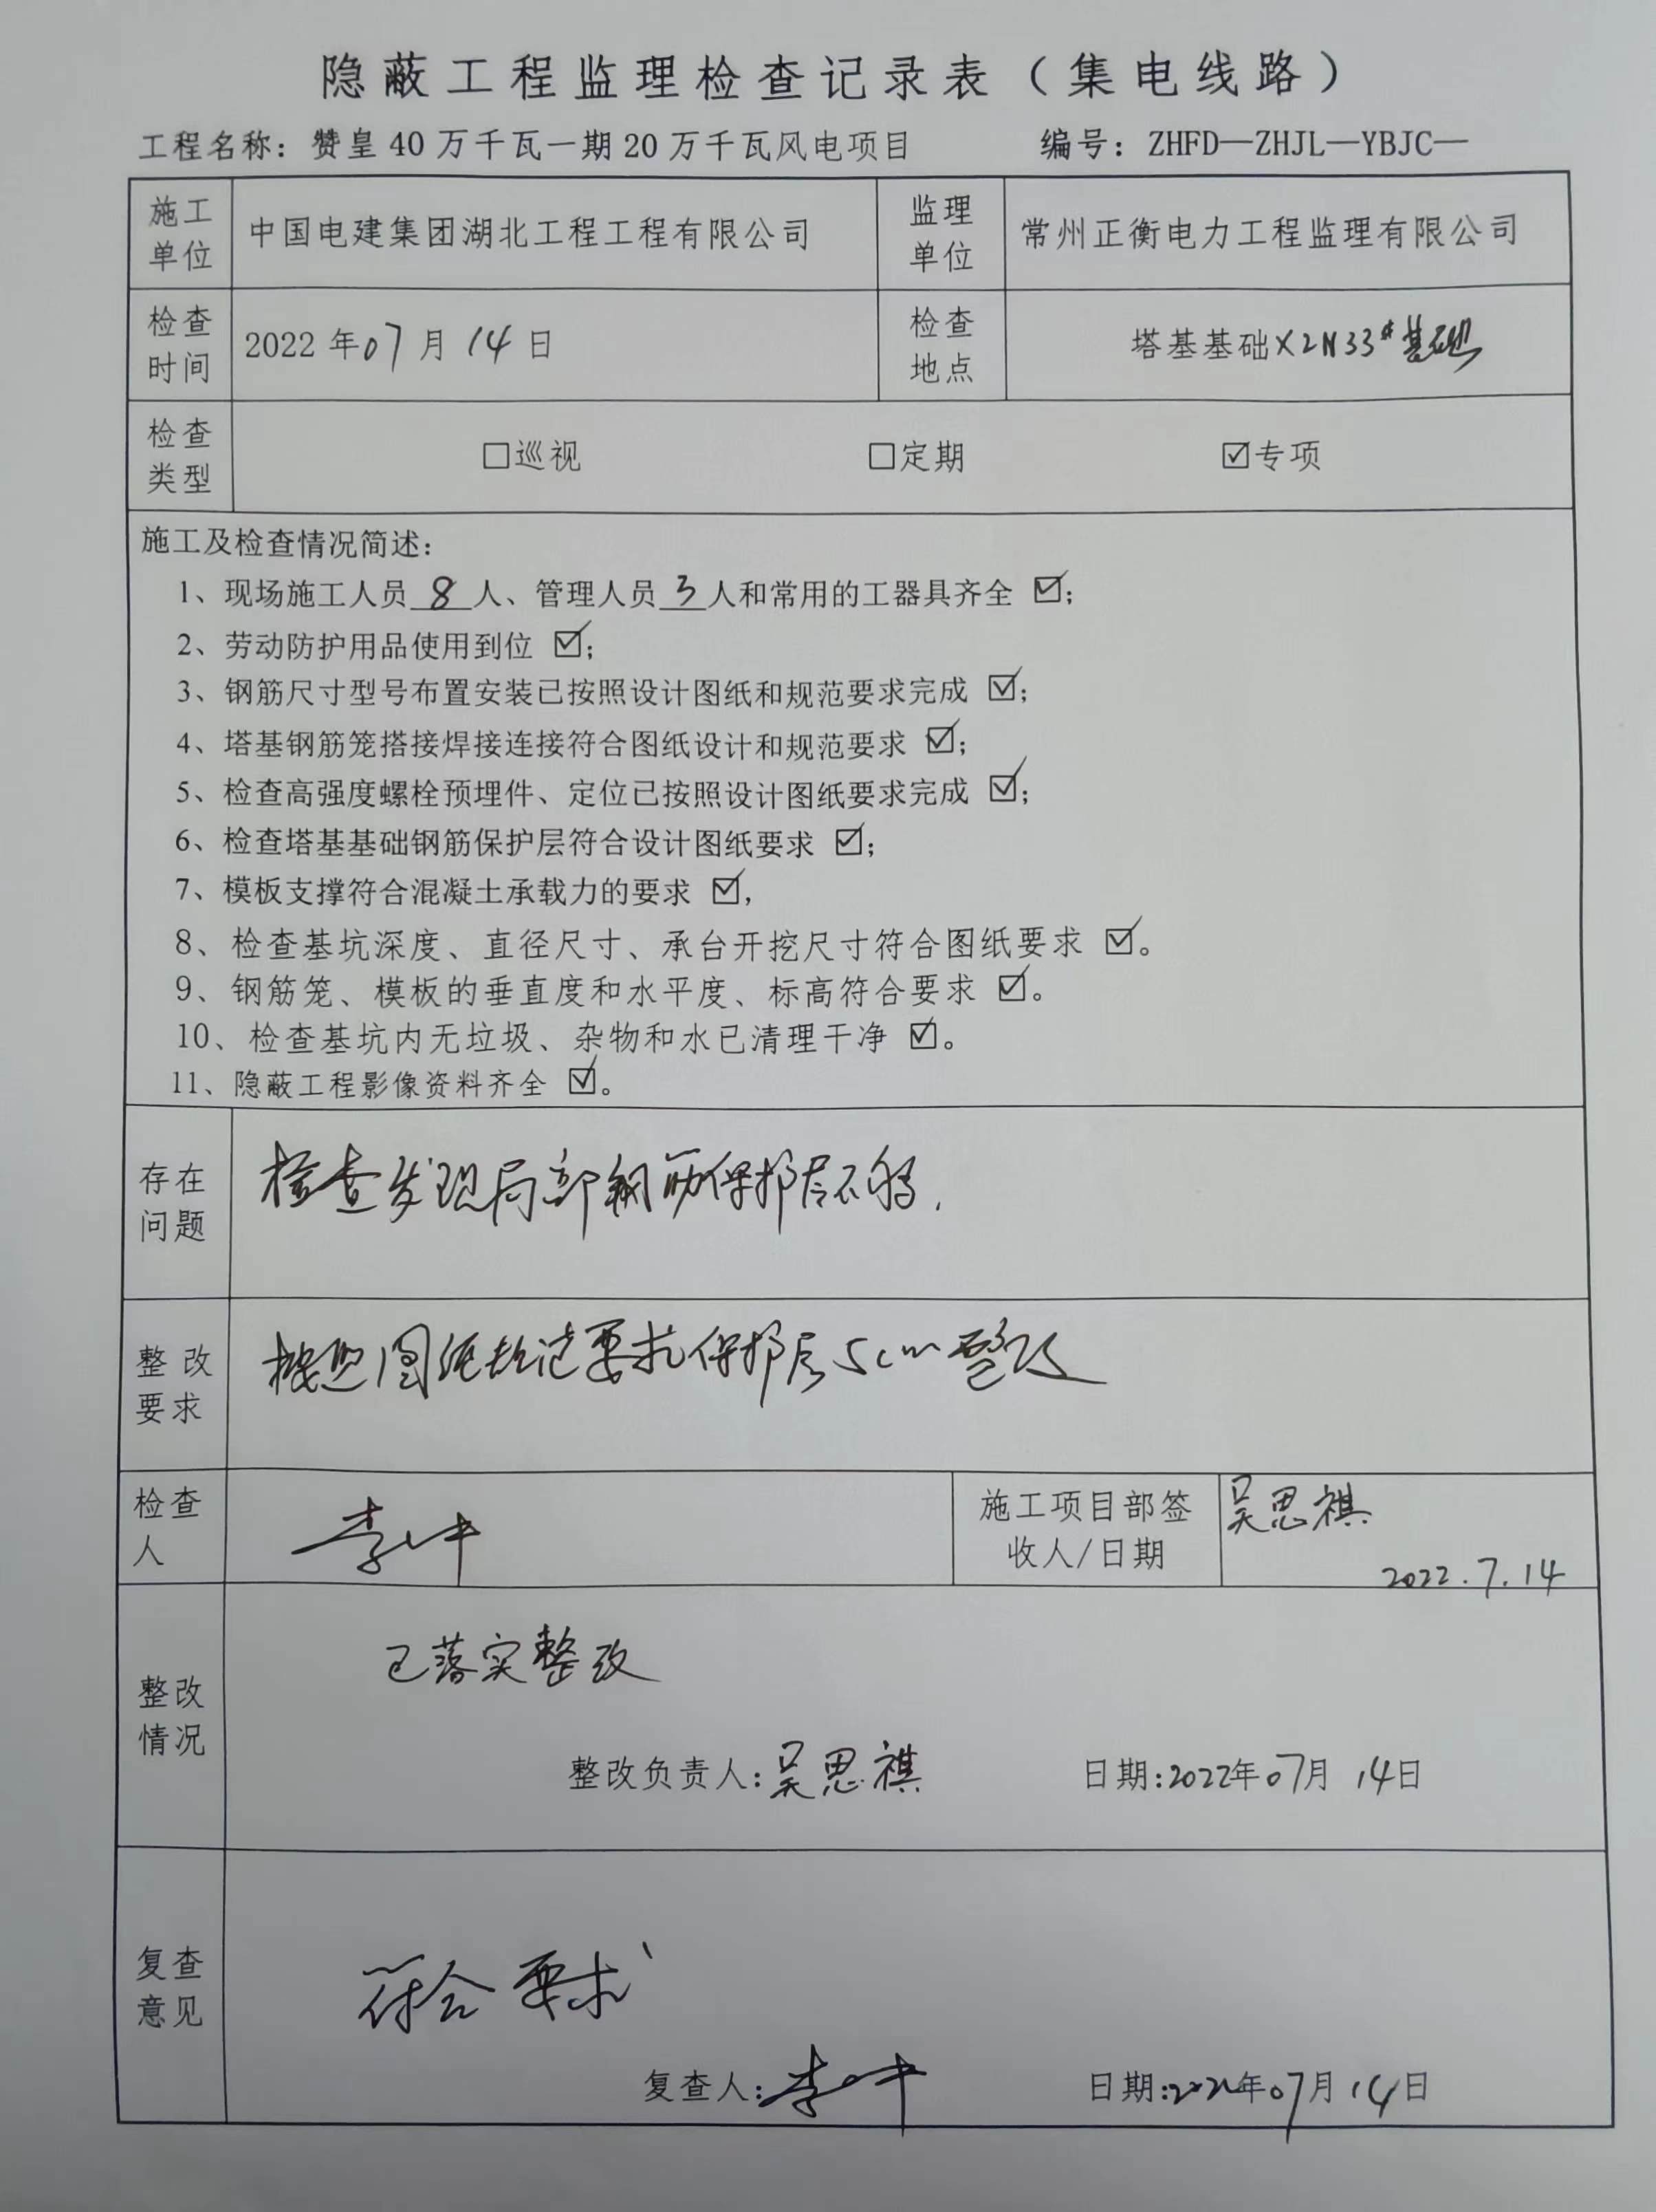 隐蔽工程监理检查记录表（集电线路）
工程名称：赞皇40万千瓦一期20万千瓦风电项目 编号：ZHFD—ZHJL—YBJC—
施工单位 中国电建集团湖北工程工程有限公司 监理单位 常州正衡电力工程监理有限公司
检查时间 2022年07月14日 检查地点 塔基基础X2N33#基础
检查类型 □巡视 □定期 ☑专项
施工及检查情况简述：
1、现场施工人员8人、管理人员3人和常用的工器具齐全 ☑；
2、劳动防护用品使用到位 ☑；
3、钢筋尺寸型号布置安装已按照设计图纸和规范要求完成 ☑；
4、塔基钢筋笼搭接焊接连接符合图纸设计和规范要求 ☑；
5、检查高强度螺栓预埋件、定位已按照设计图纸要求完成 ☑；
6、检查塔基基础钢筋保护层符合设计图纸要求 ☑；
7、模板支撑符合混凝土承载力的要求 ☑，
8、检查基坑深度、直径尺寸、承台开挖尺寸符合图纸要求 ☑。
9、钢筋笼、模板的垂直度和水平度、标高符合要求 ☑。
10、检查基坑内无垃圾、杂物和水已清理干净 ☑。
11、隐蔽工程影像资料齐全 ☑。
存在问题 检查发现局部钢筋保护层不够.
整改要求 按照图纸规范要求保护层5cm整改
检查人 李 施工项目部签收人/日期 吴思祺
2022.7.14
整改情况 已落实整改
整改负责人：吴思祺 日期：2022年07月14日
复查意见 符合要求
复查人：李 日期：2022年07月14日